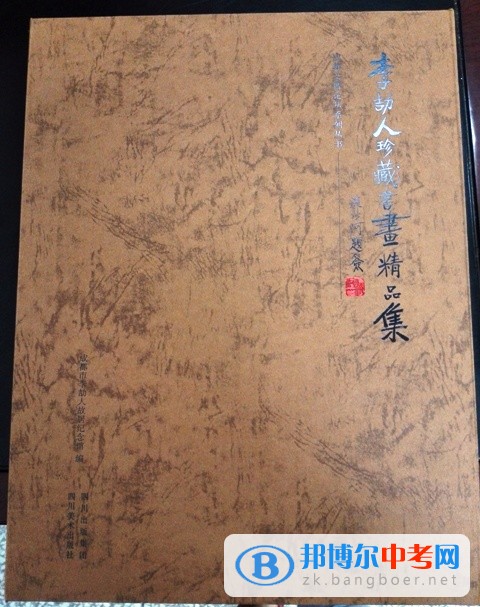 李劼人珍藏書畫精品集
成都市李劼人故居纪念馆 编
四川出版集团
四川美术出版社
邦博尔中考网
zk.bangboer.net